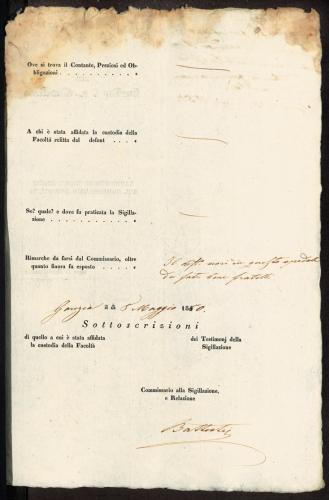 Ove si trova il Contante, Preziosi ed Ob-
bligazioni . . . . . . . . . . .
A chi è stata affidata la custodia della
Facoltà relitta dal defont . . . .
Se? quale? e dove fu praticata la Sigilla-
zione . . . . . . . . . . . . .
Rimarche da farsi dal Commissario, oltre
quanto finora fu esposto . . . . .
Il morì in questo
da fate bene fratelli
li 8 Maggio 1850.
Sottoscrizioni
di quello a cui è stata affidata
la custodia della Facoltà
dei Testimonj della
Sigillazione
Commissario alla Sigillazione,
e Relazione